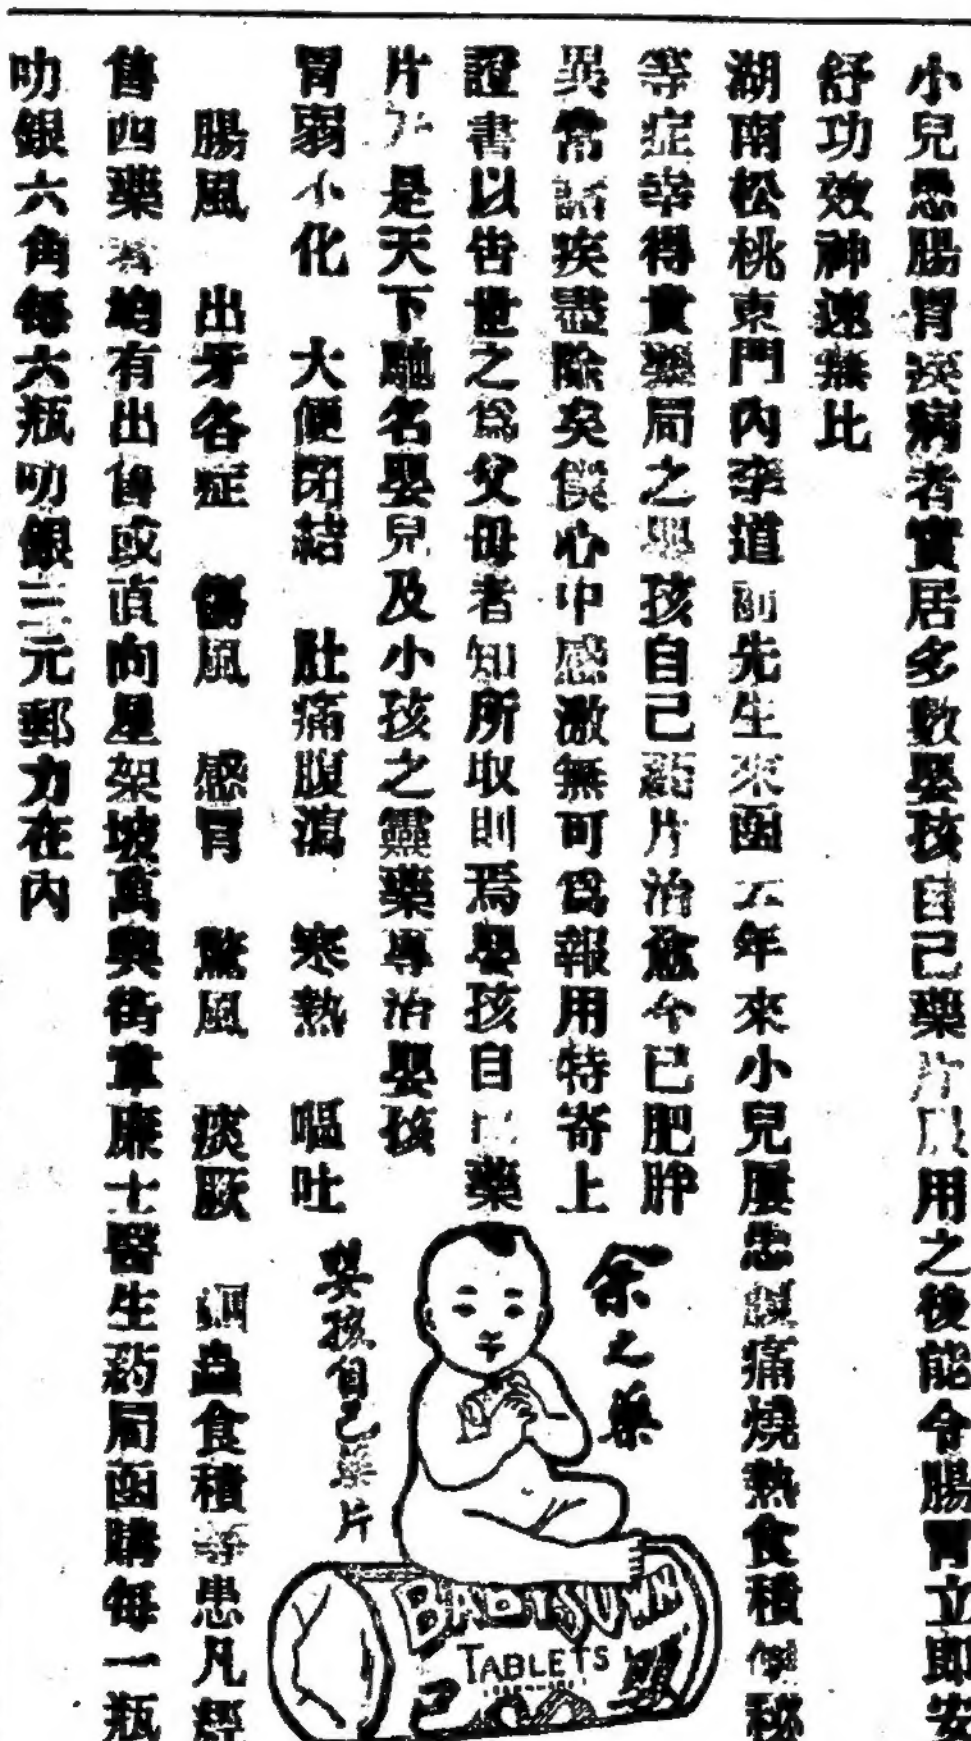 小兒患腸胃疾病者實居多數嬰孩自己藥片服用之後能令腸胃立即安
舒功效神速無比
湖南松桃東門內李道 先生來函五年來小兒屢患 痛燒熱食積便秘
等症幸得貴藥局之嬰孩自己葯片治愈今已肥胖
異常諸疾盡除矣僕心中感激無可為報用特寄上
證書以告世之為父母者知所取則焉嬰孩自己藥
片 是天下馳名嬰兒及小孩之靈藥專治嬰孩
胃弱不化 大便閉結 肚痛腹瀉 寒熱 嘔吐
腸風 出牙各症 傷風 感冒 驚風 痰厥 蟲食積等患凡經
售西藥者均有出售或直向星架坡萬興街韋廉士醫生葯局函購每一瓶
叻銀六角每六瓶叻銀三元郵力在內
余之藥
嬰孩自己藥片
BABY'S OWN
TABLETS
己 嬰